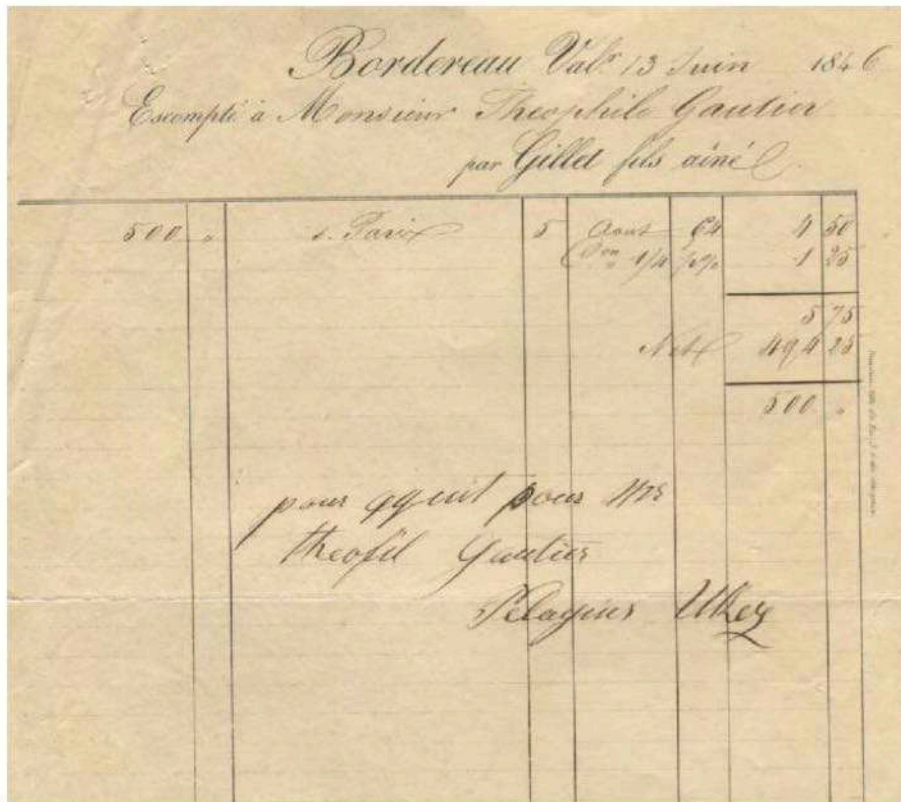 Bordereau Val.r 13 Juin 1846
Escompté à Monsieur Theophile Gautier
par Gillet fils aîné
500 " s. Paris 5 Aout 64 4 50
Con 1/4 p% 1 25
5 75
Net 494 25
500 "
pour aquit pour Mr
theofil Gautier